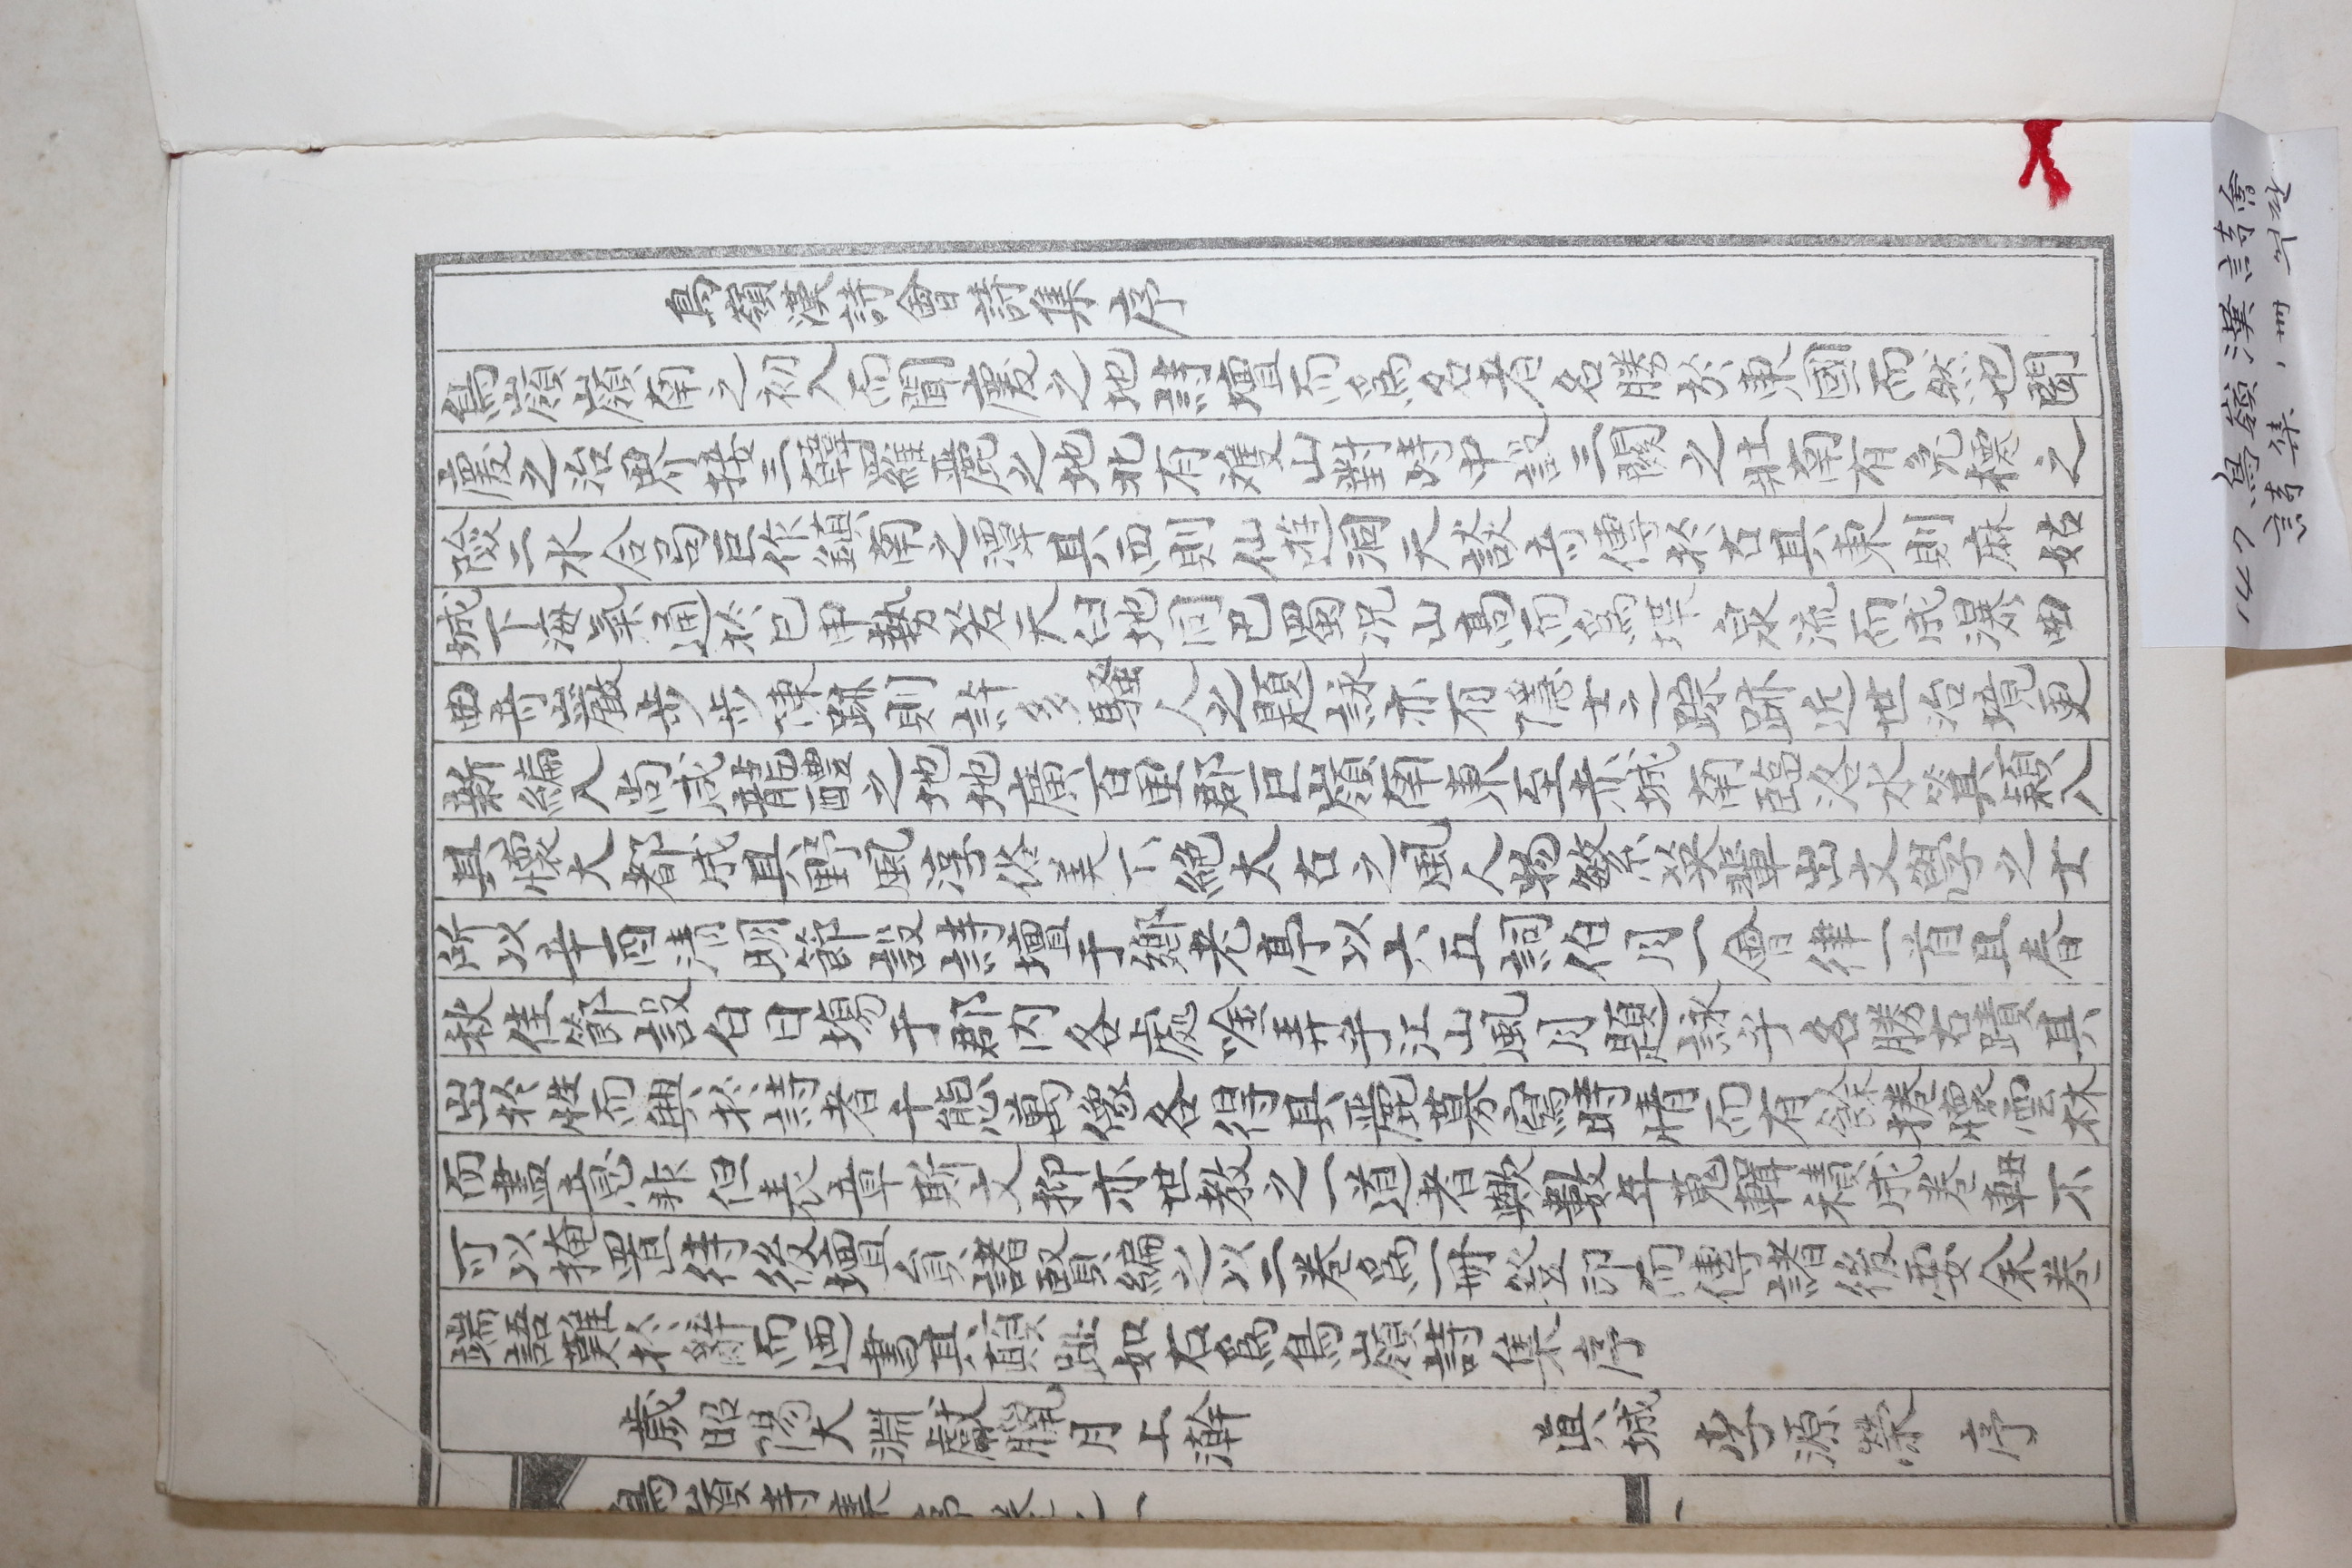 鳥嶺漢詩會詩集序
鳥嶺嶺南之初入而聞慶之地詩壇而爲名者名勝於東國而然也聞
慶之治界接三韓羅麗之地北有雙山對峙中設三關之壯南有兔棧之
險二水合局巨作鎭南之潭其西則仙遊洞天談奇傳於古其東則麻姑
城下海氣通於巳甲勢若天臼地同巴蜀况山高而爲 泉流而成瀑曲
曲奇巖步步陳跡則許多騷人之題詠亦有隱士之踪跡近世治境更
新編入尚咸龍醴之地地廣百里郡巨嶺南東至赤城南臨洛水箕潁八
其懷大都成具野風淳俗美不絶太古之風人物繁英輩出文學之士
所以辛酉清明節設詩壇于鄉老亭以六五詞伯月一會律一首且春
秋佳節設白日塲于郡内各處唫弄乎江山風月題詠乎名勝古蹟其
出於性而興於詩者千態萬像各得其麗摹寫時情而有餘捲懷雲林
而盡意非但表章斯文抑亦世教之一道者歟數年蒐輯積成卷軸不
可以掩置待後壇員諸賢編之以二卷爲一冊登印而傳諸後要余卷
端語難於辭而迺書其顛趾如右爲鳥嶺詩集序
歲昭陽大淵獻臘月上澣 眞城 李源榮 序
鳥嶺詩集 序 卷之一 一
147 鳥嶺漢詩會
詩集 1冊 석판